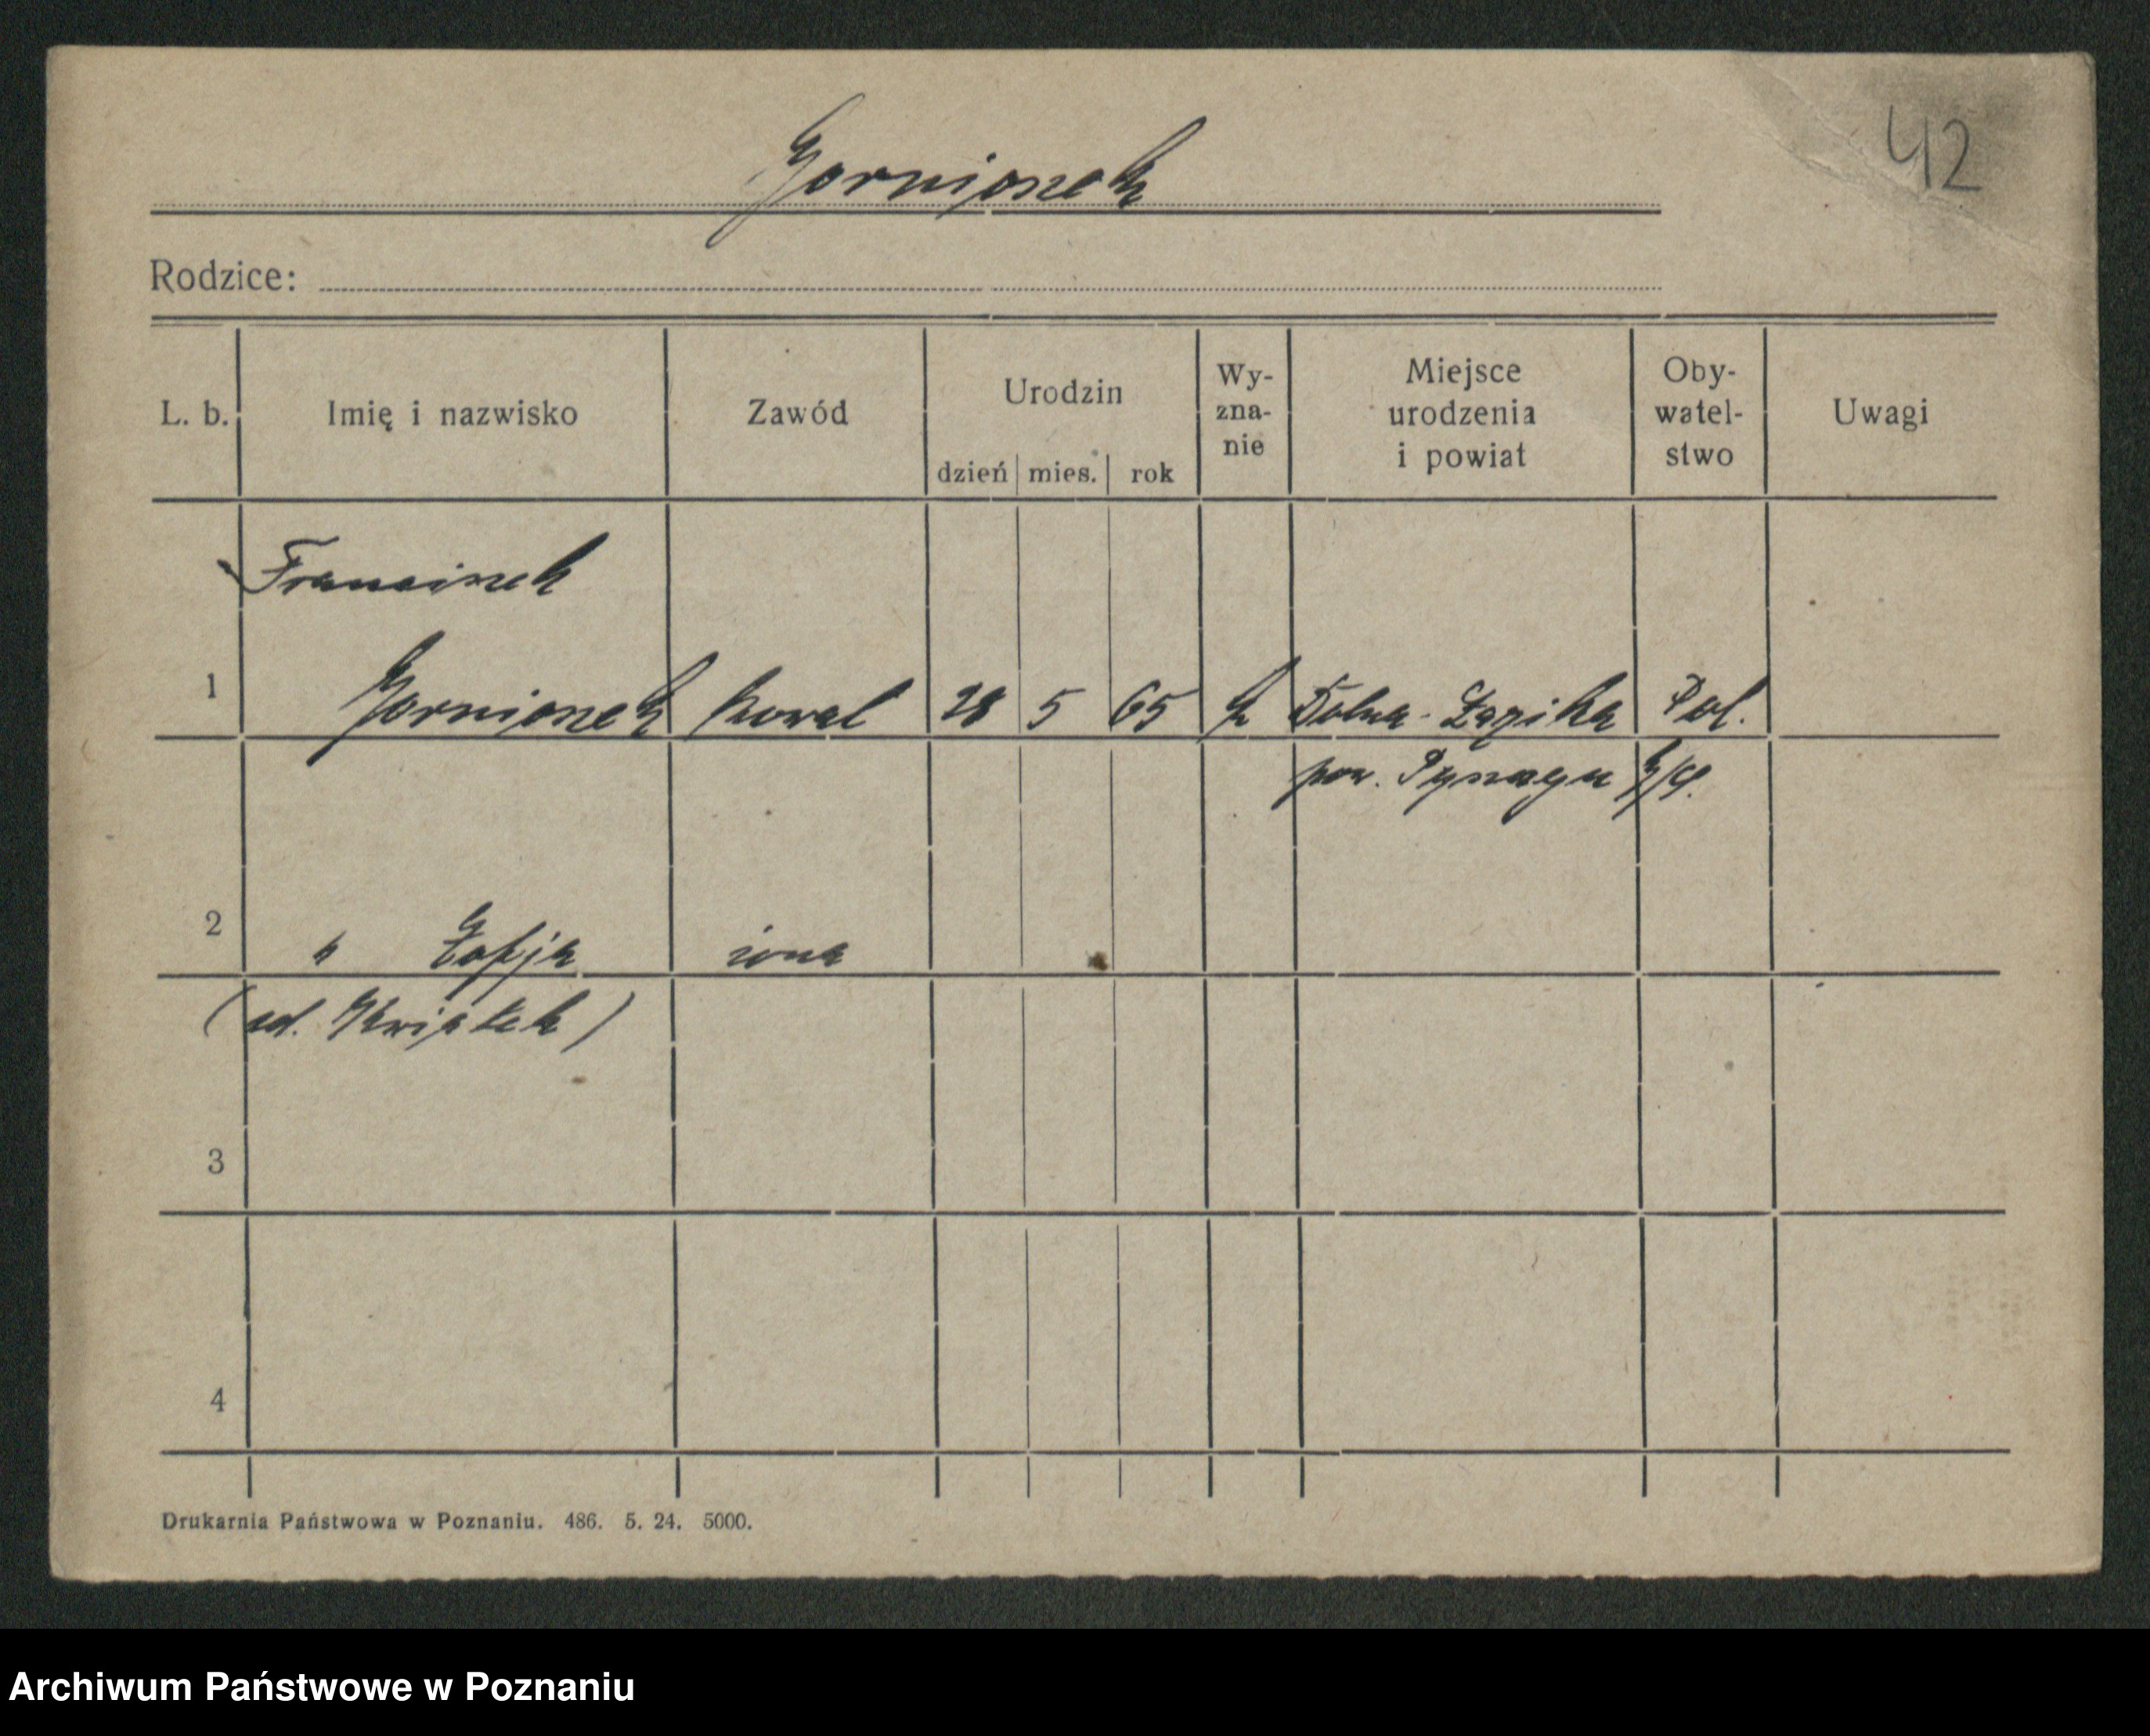 Gornionek
42
Rodzice:
L. b. Imię i nazwisko Zawód Urodzin dzień mies. rok Wy-zna-nie Miejsce urodzenia i powiat Oby-watel-stwo Uwagi
Franciszek
1 Gornionek kowal 28 5 65 k Dolna- Pol.
pow.
2 " Zofja żona
(ud. Kwiatek)
3
4
Drukarnia Państwowa w Poznaniu. 486. 5. 24. 5000.
Archiwum Państwowe w Poznaniu